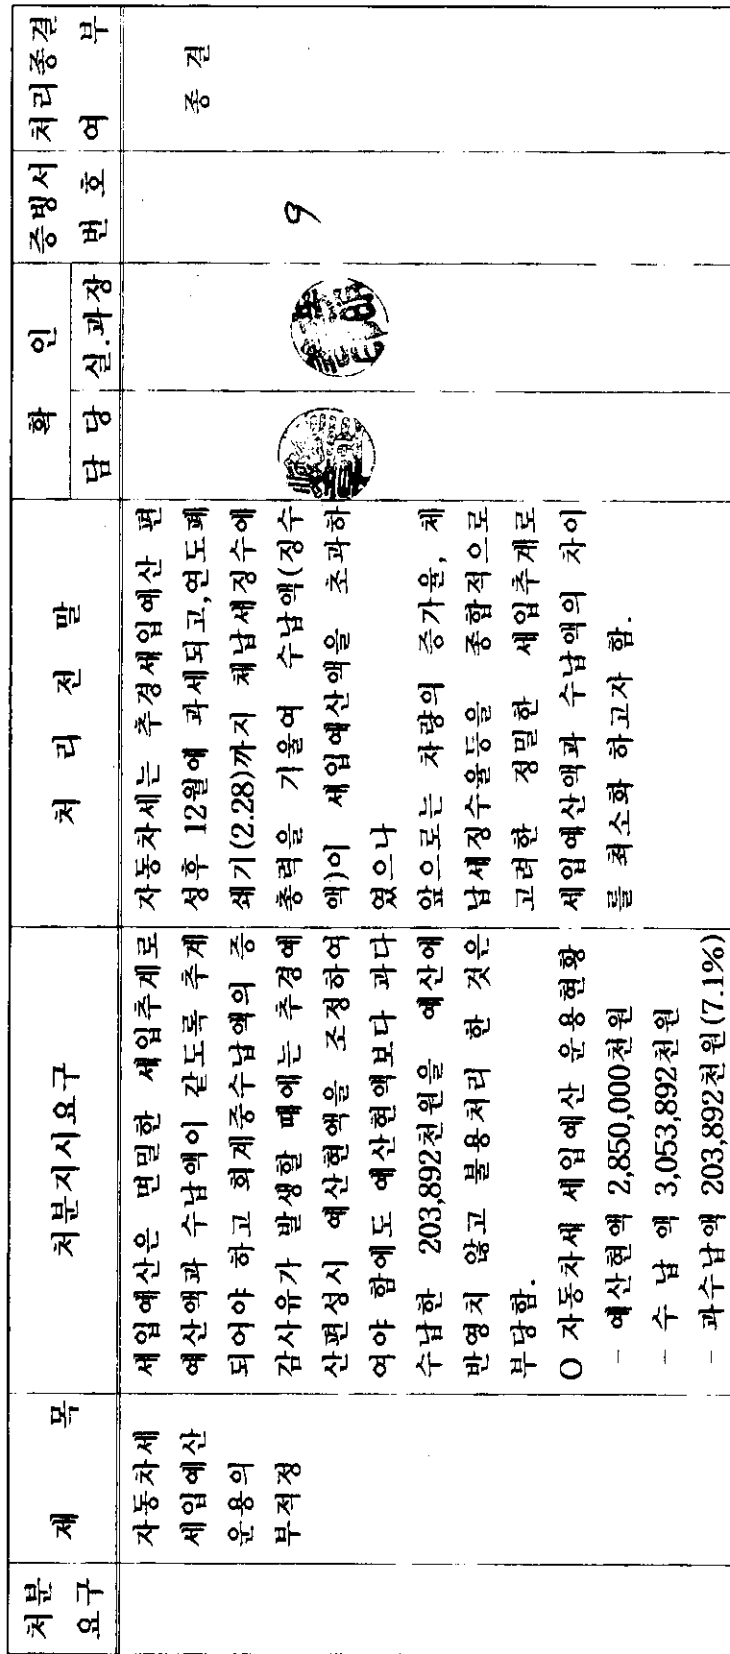 처분
요구
제 목
처분지시요구
처 리 전 말
확 인
담 당
실.과장
증빙서
번 호
처리종결
여 부
자동차세
세입예산
운용의
부적정
세입예산은 면밀한 세입추계로
예산액과 수납액이 같도록 추계
되어야 하고 회계중수납액의 증
감사유가 발생할 때에는 추경예
산편성시 예산현액을 조정하여
여야 함에도 예산현액보다 과다
수납한 203,892천원을 예산에
반영치 않고 불용처리 한 것은
부당함.
O 자동차세 세입예산 운용현황
- 예산현액 2,850,000천원
- 수 납 액 3,053,892천원
- 과수납액 203,892천원(7.1%)
자동차세는 추경세입예산 편
성후 12월에 과세되고,연도폐
쇄기(2.28)까지 체납세징수에
총력을 기울여 수납액(징수
액)이 세입예산액을 초과하
였으나
앞으로는 차량의 증가율, 체
납세징수율등을 종합적으로
고려한 정밀한 세입추계로
세입예산액과 수납액의 차이
를 최소화 하고자 함.
9
종 결